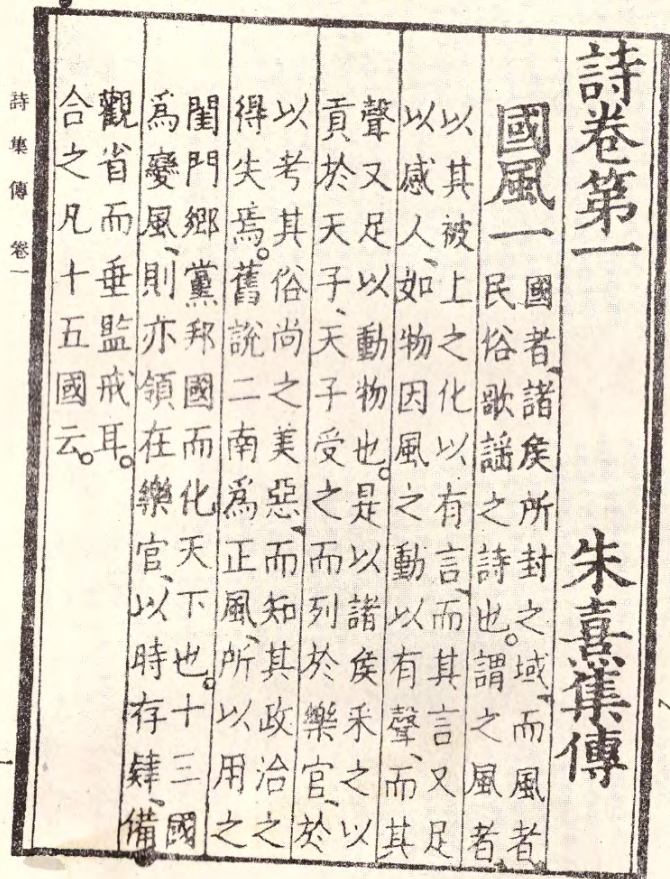 詩卷第一 朱熹集傳
國風一 國者、諸矦所封之域、而風者、
民俗歌謠之詩也。謂之風者、
以其被上之化以有言、而其言又足
以感人、如物因風之動以有聲、而其
聲又足以動物也。是以諸矦采之以
貢於天子、天子受之而列於樂官、於
以考其俗尚之美惡、而知其政治之
得失焉。舊說二南爲正風、所以用之
閨門鄉黨邦國而化天下也。十三國
爲變風、則亦領在樂官、以時存肄、備
觀省而垂監戒耳。
合之凡十五國云。
詩集傳 卷一
一